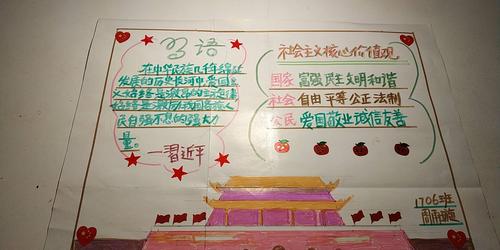 习语
在中华民族几千年绵延
发展的历史长河中,爱国主
义始终是激昂的主旋律
始终是激励我国各族人
民自强不息的强大力
量。
—習近平
社会主义核心价值观
国家 富强民主文明和谐
社会 自由平等公正法制
公民 爱国敬业诚信友善
1706班